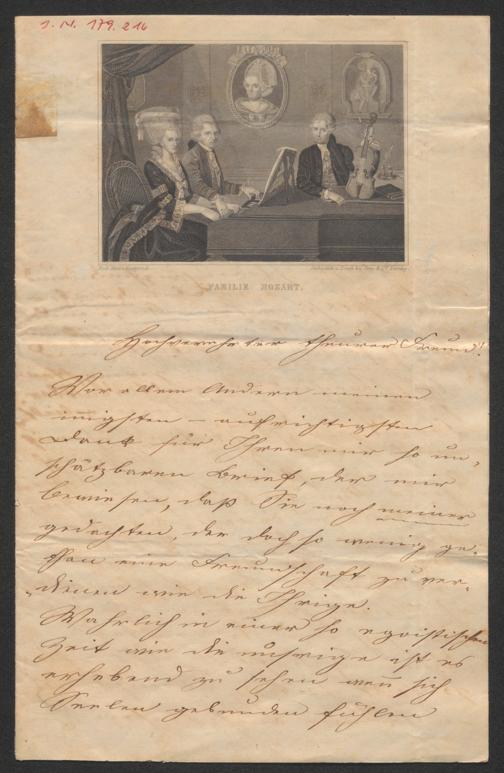 J. N. 179.216
FAMILIE MOZART.
Hochverehrter theurer Freund!
Vor allem Andern meinen
innigsten – aufrichtigsten
Dank für Ihren mir so un-
schätzbaren Brief, der mir
bewiesen, daß Sie noch meiner
gedachten, der doch so wenig ge-
than eine Freundschaft zu ver-
dienen wie die Ihrige.
Wahrlich in einer so egoistischen
Zeit wie die unsrige ist es
erhebend zu sehen wenn sich
Seelen gebunden fühlen